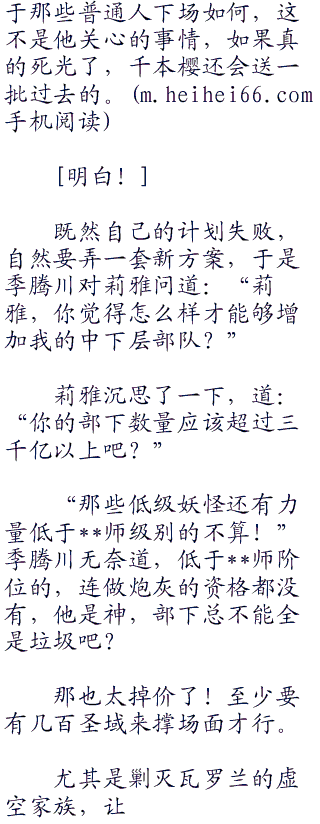 于那些普通人下场如何，这
不是他关心的事情，如果真
的死光了，千本樱还会送一
批过去的。(m.heihei66.com
手机阅读)
[明白！]
既然自己的计划失败，
自然要弄一套新方案，于是
季腾川对莉雅问道：“莉
雅，你觉得怎么样才能够增
加我的中下层部队？”
莉雅沉思了一下，道：
“你的部下数量应该超过三
千亿以上吧？”
“那些低级妖怪还有力
量低于**师级别的不算！”
季腾川无奈道，低于**师阶
位的，连做炮灰的资格都没
有，他是神，部下总不能全
是垃圾吧？
那也太掉价了！至少要
有几百圣域来撑场面才行。
尤其是剿灭瓦罗兰的虚
空家族，让